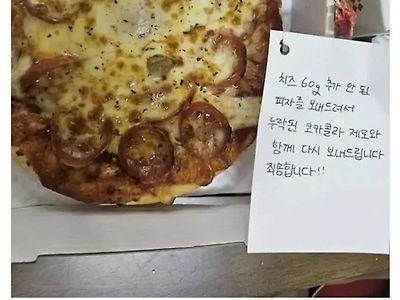 치즈 60g 추가 안 된
피자를 보내드려서
누락된 코카콜라 제로와
함께 다시 보내드립니다
죄송합니다!!